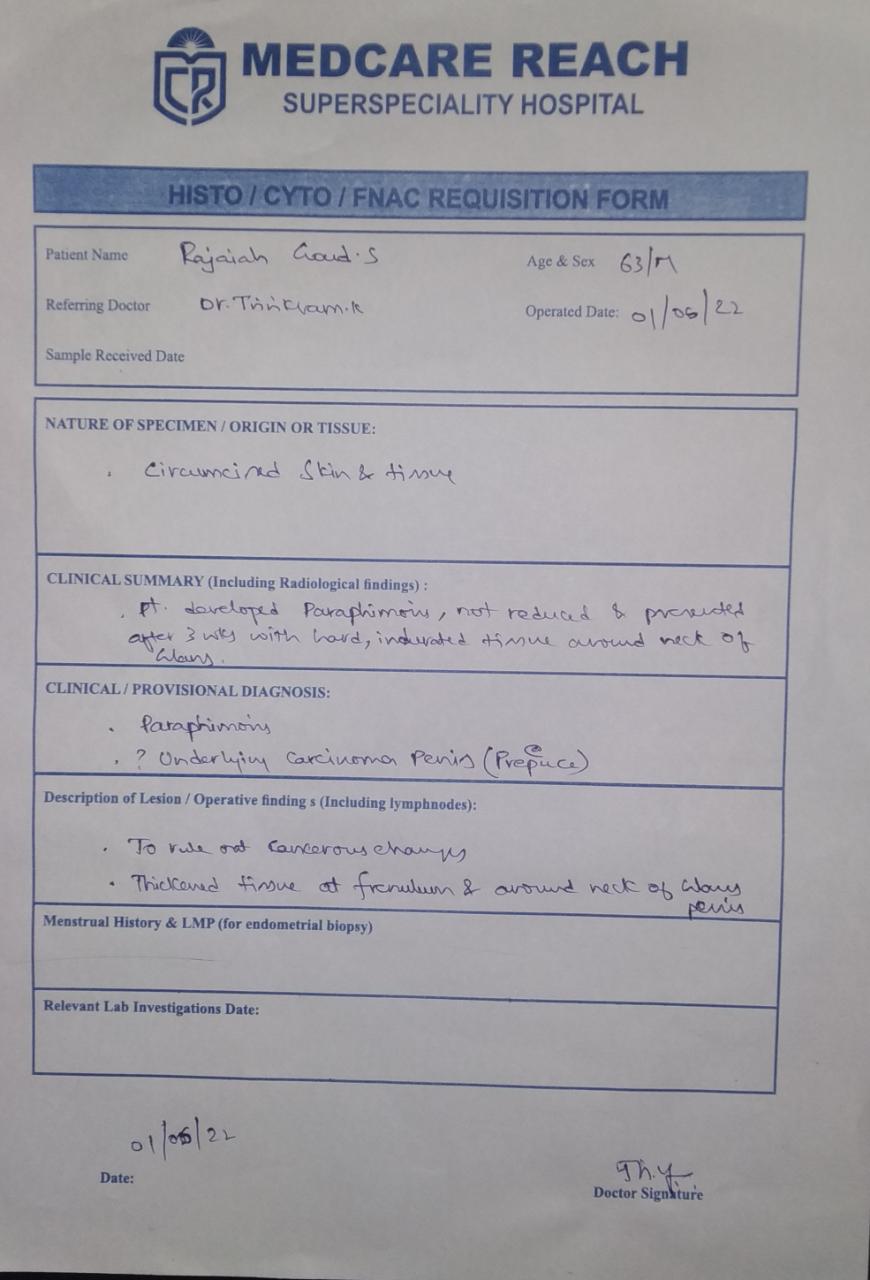 MEDCARE REACH
SUPERSPECIALITY HOSPITAL
HISTO / CYTO / FNAC REQUISITION FORM
Patient Name Rajaiah Goud.S Age & Sex 63/M
Referring Doctor Dr. Operated Date: 01/06/22
Sample Received Date
NATURE OF SPECIMEN / ORIGIN OR TISSUE:
Circumcised Skin & tissue
CLINICAL SUMMARY (Including Radiological findings) :
. Pt. developed Paraphimosis, not reduced & presented
after 3 wks with hard, indurated tissue around neck of
Glans.
CLINICAL / PROVISIONAL DIAGNOSIS:
. Paraphimosis
. ? Underlying Carcinoma Penis (Prepuce)
Description of Lesion / Operative finding s (Including lymphnodes):
. To rule out Cancerous changes
. Thickened tissue at frenulum & around neck of Glans
penis
Menstrual History & LMP (for endometrial biopsy)
Relevant Lab Investigations Date:
01/06/22
Date:
Doctor Signature